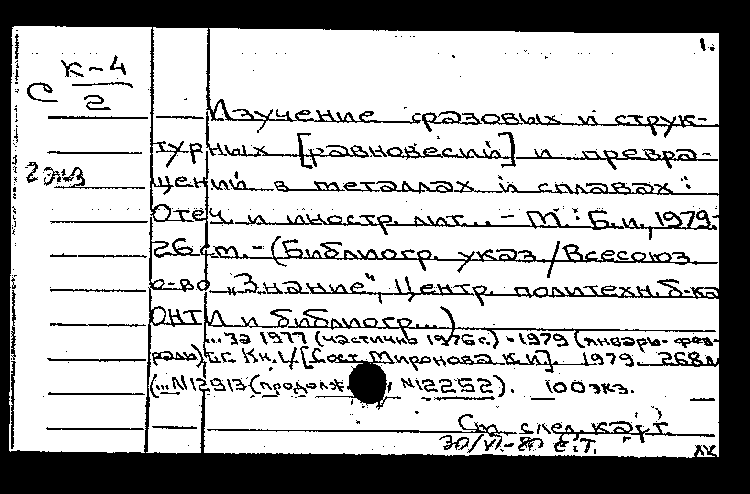 1.
К-4
С 2
Изучение фазовых и струк-
турных [равновесий] и превра-
2 экз
щений в металлах и сплавах:
Отеч. и иностр. лит... - М.: Б.и., 1979.-
26 см. - (Библиогр. указ. / Всесоюз.
о-во "Знание", Центр. политехн. б-ка
ОНТИ и библиогр...)
... За 1977 (частично 1976 г.) - 1979 (январь-фев-
раль) г.г. Кн. 1/[Сост. Миронова К.И]. 1979. 268
(...N12913 (продолж. N12252). 100 экз.
См. след. карт.
30/VI-80 Е.Т.